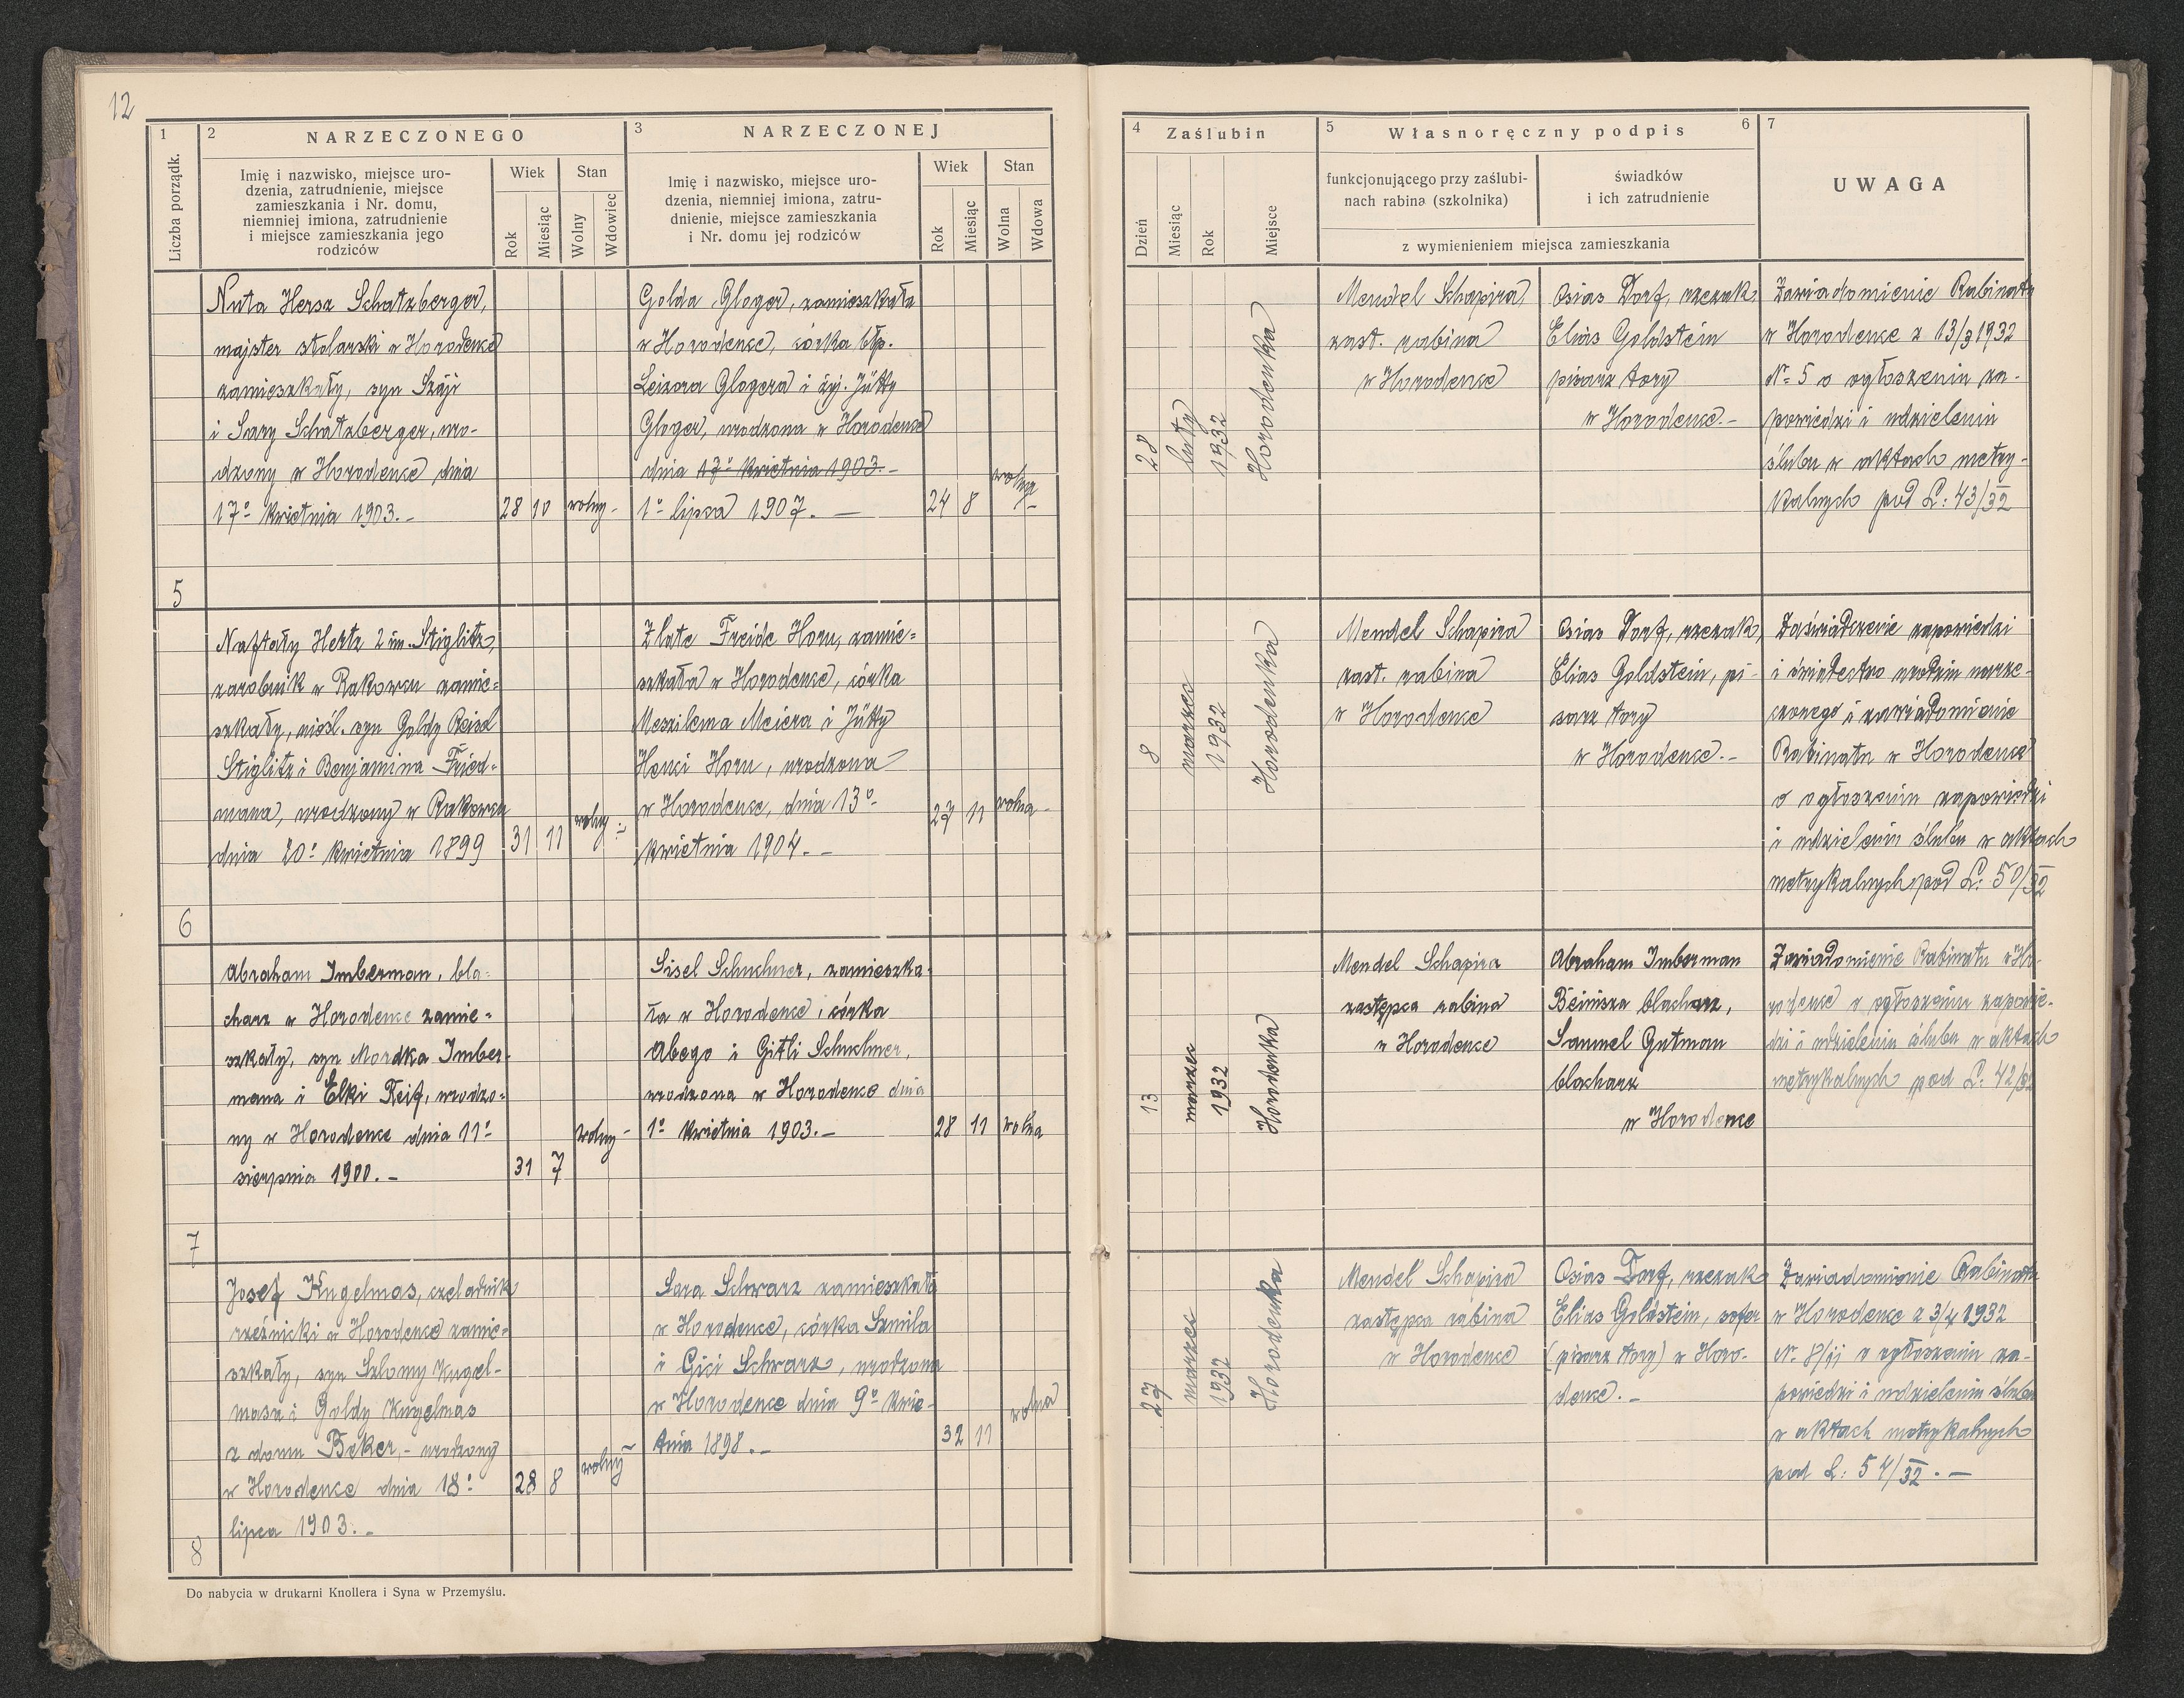 12
1
2
NARZECZONEGO
3
NARZECZONEJ
Liczba porządk.
Imię i nazwisko, miejsce uro-
dzenia, zatrudnienie, miejsce
zamieszkania i Nr. domu,
niemniej imiona, zatrudnienie
i miejsce zamieszkania jego
rodziców
Wiek
Rok
Miesiąc
Stan
Wolny
Wdowiec
Imię i nazwisko, miejsce uro-
dzenia, niemniej imiona, zatru-
dnienie, miejsce zamieszkania
i Nr. domu jej rodziców
Wiek
Rok
Miesiąc
Stan
Wolna
Wdowa
4
Zaślubin
Dzień
Miesiąc
Rok
Miejsce
5
Własnoręczny podpis
6
funkcjonującego przy zaślubi-
nach rabina (szkolnika)
świadków
i ich zatrudnienie
z wymienieniem miejsca zamieszkania
7
UWAGA
5
Nuta Hersz Schatzberger,
majster stolarski w Horodence
zamieszkały, syn Szaji
i Sary Schatzberger, uro-
dzony w Horodence dnia
17º kwietnia 1903.-
28
10
wolny -
Golda Gloger, zamieszkała
w Horodence, córka błp.
Leizora Glogera i żyj. Jütty
Gloger, urodzona w Horodence
dnia 17º kwietnia 1903.-
1º lipca 1907. -
24
8
wolna -
28
luty
1932
Horodenka
Mendel Schapira
zast. rabina
w Horodence
Osias Dorf, rzezak
Elias Goldstein
pisarz tory
w Horodence.-
Zawiadomienie Rabinatu
w Horodence z 13/3 1932
Nº 5 o ogłoszeniu za-
powiedzi i udzieleniu
ślubu w aktach metry-
kalnych pod L: 43/32
6
Naftaly Hertz 2 im. Stiglitz,
zarobnik w Rakowcu zamie=
szkały, nieśl. syn Goldy Reisel
Stiglitz i Benjamina Fried-
mana, urodzony w Rakowcu
dnia 20º kwietnia 1899
31
11
wolny -
Zlate Freide Horn, zamie=
szkała w Horodence, córka
Meszilema Meiera i Jütty
Henci Horn, urodzona
w Horodence, dnia 13º
kwietnia 1904. -
27
11
wolna -
8
marzec
1932
Horodenka
Mendel Schapira
zast. rabina
w Horodence
Osias Dorf, rzezak,
Elias Goldstein, pi-
sarz tory
w Horodence.-
Zaświadczenie zapowiedzi
i świadectwo urodzin narze-
czonego i zawiadomienie
Rabinatu w Horodence
o ogłoszeniu zapowiedzi
i udzieleniu ślubu w aktach
metrykalnych pod L: 50/32
7
Abraham Imberman, bla-
charz w Horodence zamie=
szkały, syn Mordka Imber-
mana i Elki Reif, urodzo-
ny w Horodence dnia 11º
sierpnia 1900.-
31
7
wolny -
Sisel Schuchner, zamieszka-
ła w Horodence, córka
Abego i Gitli Schuchner,
urodzona w Horodence dnia
1º kwietnia 1903.-
28
11
wolna
13
marzec
1932
Horodenka
Mendel Schapira
zastępca rabina
w Horodence
Abraham Imberman
Beinisza blacharz,
Samuel Gutman
blacharz
w Horodence
Zawiadomienie Rabinatu w Ho-
rodence o ogłoszeniu zapowie-
dzi i udzieleniu ślubu w aktach
metrykalnych pod L: 42/32
8
Josef Kugelmas, czeladnik
rzeźnicki w Horodence zamie-
szkały, syn Szlomy Kugel-
masa i Goldy Kugelmas
z domu Beker, - urodzony
w Horodence dnia 18º
lipca 1903.-
28
8
wolny -
Sara Schwarz zamieszkała
w Horodence, córka Szmila
i Gici Schwarz, urodzona
w Horodence dnia 9º kwie-
tnia 1898.-
32
11
wolna
27
marzec
1932
Horodenka
Mendel Schapira
zastępca rabina
w Horodence
Osias Dorf, rzezak
Elias Goldstein, sofer
(pisarz tory) w Horo-
dence.-
Zawiadomienie Rabinatu
w Horodence z 3/4 1932
Nº 8/ o ogłoszeniu za-
powiedzi i udzieleniu ślubu
w aktach metrykalnych
pod L: 54/32. -
Do nabycia w drukarni Knollera i Syna w Przemyślu.